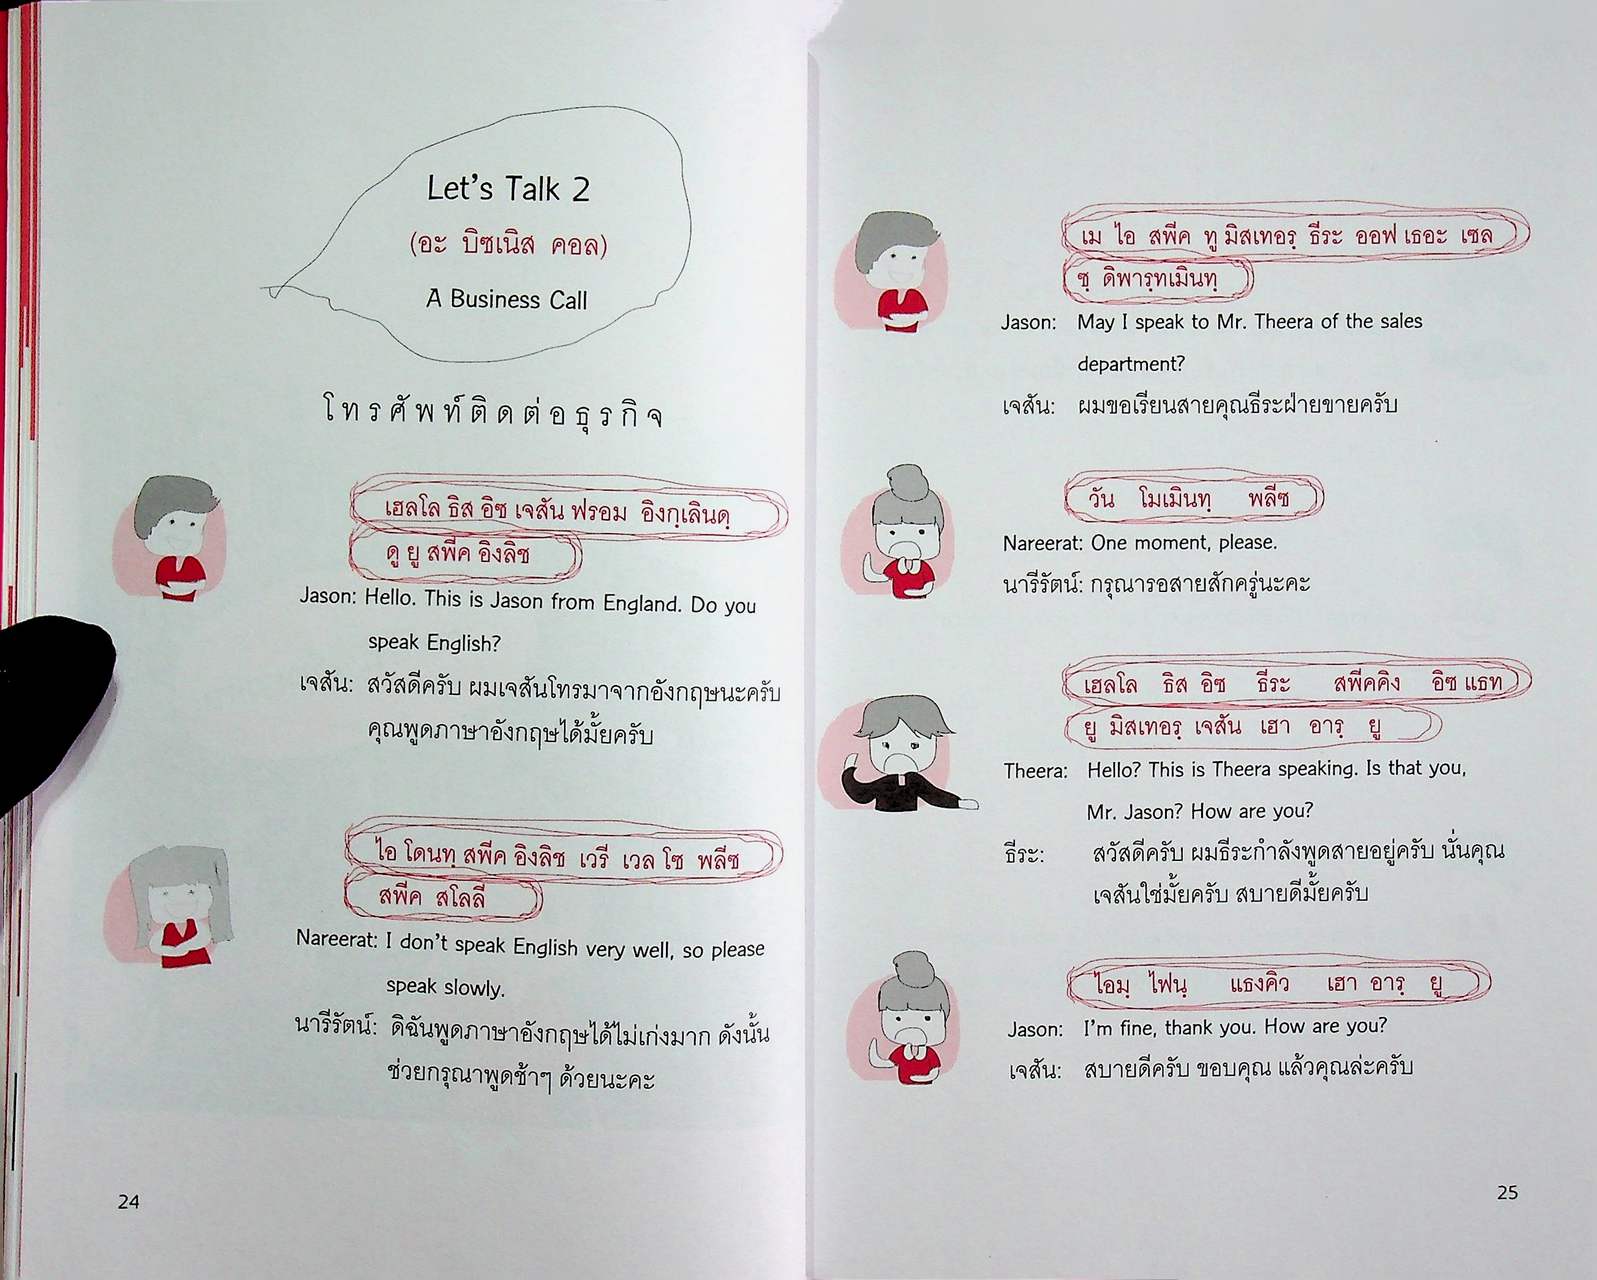 Let's Talk 2
(อะ บิซเนิส คอล)
A Business Call
โทรศัพท์ติดต่อธุรกิจ
เฮลโล ธิส อิซ เจสัน ฟรอม อิงกฺเลินดฺ
ดู ยู สพีค อิงลิช
Jason: Hello. This is Jason from England. Do you
speak English?
เจสัน: สวัสดีครับ ผมเจสันโทรมาจากอังกฤษนะครับ
คุณพูดภาษาอังกฤษได้มั้ยครับ
ไอ โดนทฺ สพีค อิงลิช เวรี เวล โซ พลีซ
สพีค สโลลี่
Nareerat: I don't speak English very well, so please
speak slowly.
นารีรัตน์: ดิฉันพูดภาษาอังกฤษได้ไม่เก่งมาก ดังนั้น
ช่วยกรุณาพูดช้าๆ ด้วยนะคะ
24
เม ไอ สพีค ทู มิสเทอรฺ ธีระ ออฟ เธอะ เซล
ซฺ ดิพารฺทเมินทฺ
Jason: May I speak to Mr. Theera of the sales
department?
เจสัน: ผมขอเรียนสายคุณธีระฝ่ายขายครับ
วัน โมเมินทฺ พลีซ
Nareerat: One moment, please.
นารีรัตน์: กรุณารอสายสักครู่นะคะ
เฮลโล ธิส อิซ ธีระ สพีคคิง อิซ แธท
ยู มิสเทอรฺ เจสัน เฮา อารฺ ยู
Theera: Hello? This is Theera speaking. Is that you,
Mr. Jason? How are you?
ธีระ: สวัสดีครับ ผมธีระกำลังพูดสายอยู่ครับ นั่นคุณ
เจสันใช่มั้ยครับ สบายดีมั้ยครับ
ไอมฺ ไฟนฺ แธงคิว เฮา อารฺ ยู
Jason: I'm fine, thank you. How are you?
เจสัน: สบายดีครับ ขอบคุณ แล้วคุณล่ะครับ
25